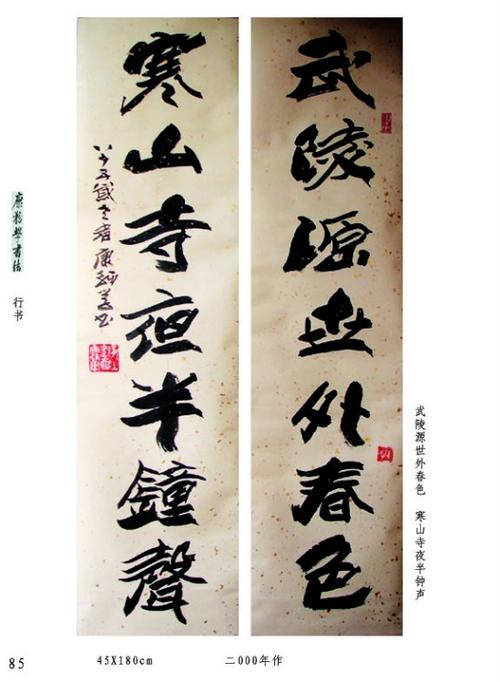 武陵源世外春色
寒山寺夜半鐘聲
八十五歲老者康
武陵源世外春色　寒山寺夜半钟声
书法
行书
85
45X180cm
二000年作